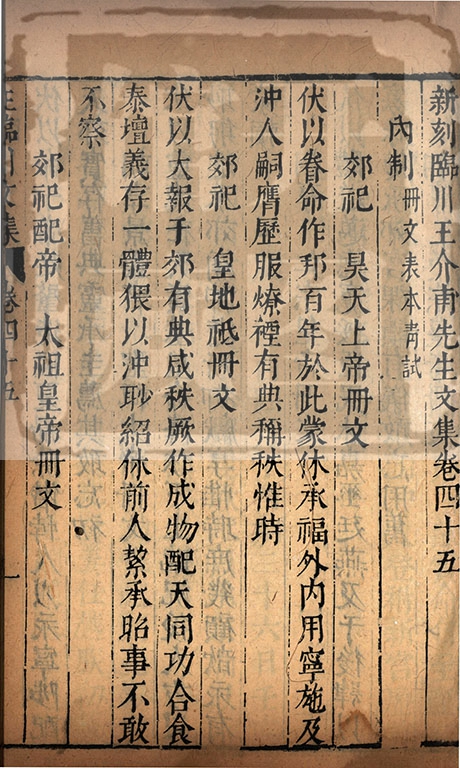 新刻臨川王介甫先生文集卷四十五
內制冊文表本青詞
郊祀昊天上帝冊文
伏以眷命作邦百年於此蒙休承福外內用寧施及
沖人嗣膺歷服燎禋有典稱秩惟時
郊祀皇地祇冊文
伏以大報于郊有典咸秩厥作成物配天同功合食
泰壇義存一體猥以沖眇紹休前人繄承昭事不敢
不察
郊祀配帝太祖皇帝冊文
王臨川文集卷四十五
一